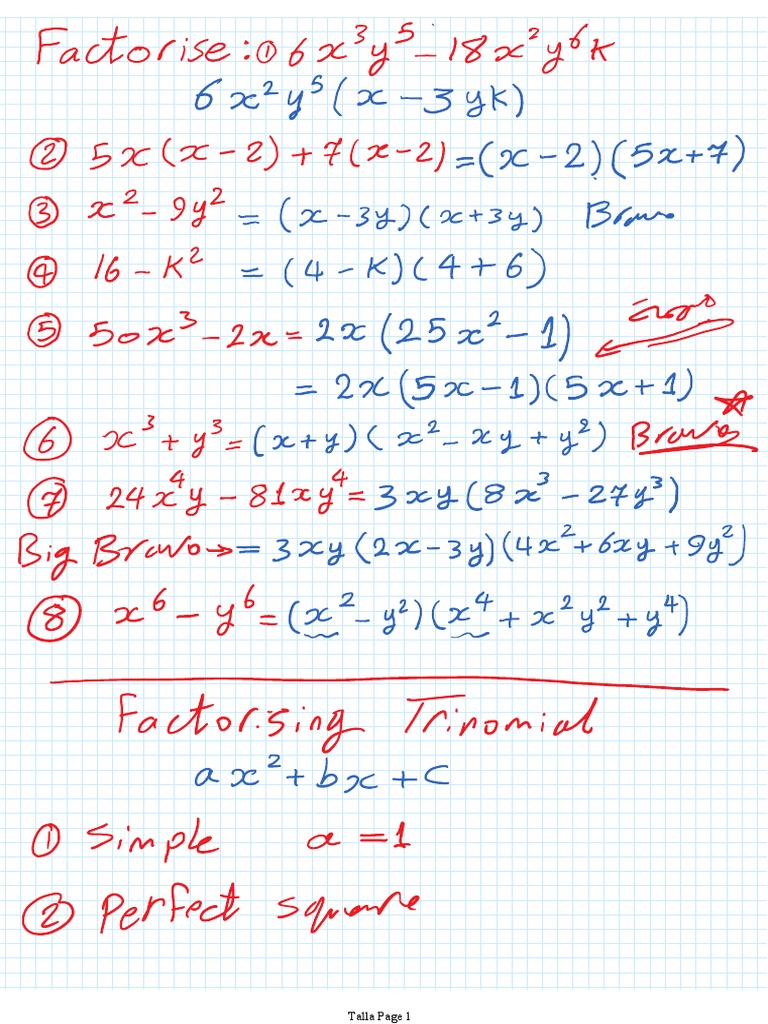 Factorise: ① 6x³y⁵ - 18x²y⁶k
6x²y⁵(x - 3yk)
② 5x(x-2)+7(x-2)=(x-2)(5x+7)
③ x² - 9y² = (x-3y)(x+3y) Bravo
④ 16 - K² = (4-K)(4+6)
⑤ 50x³ - 2x = 2x(25x²-1)
= 2x(5x-1)(5x+1)
⑥ x³ + y³ = (x+y)(x² - xy + y²) Bravo
⑦ 24x⁴y - 81xy⁴ = 3xy(8x³ - 27y³)
Big Bravo → = 3xy(2x-3y)(4x²+6xy+9y²)
⑧ x⁶ - y⁶ = (x² - y²)(x⁴ + x²y² + y⁴)
Factorising Trinomial
ax² + bx + c
① Simple a = 1
② Perfect square
Talla Page 1